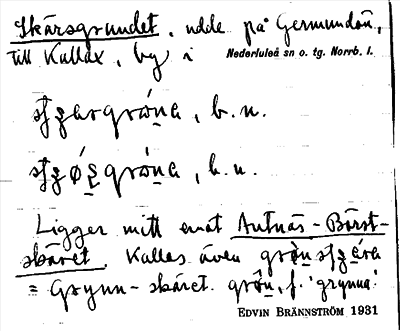 Skärsgrundet, udde på Germundön,
till Kallax, by i Nederluleå sn o. tg. Norrb. l.
b. n.
b. n.
Ligger mitt emot Antnäs-Börst-
skäret. Kallas även
= Grynn-skäret. f. 'grynna'.
EDVIN BRÄNNSTRÖM 1931